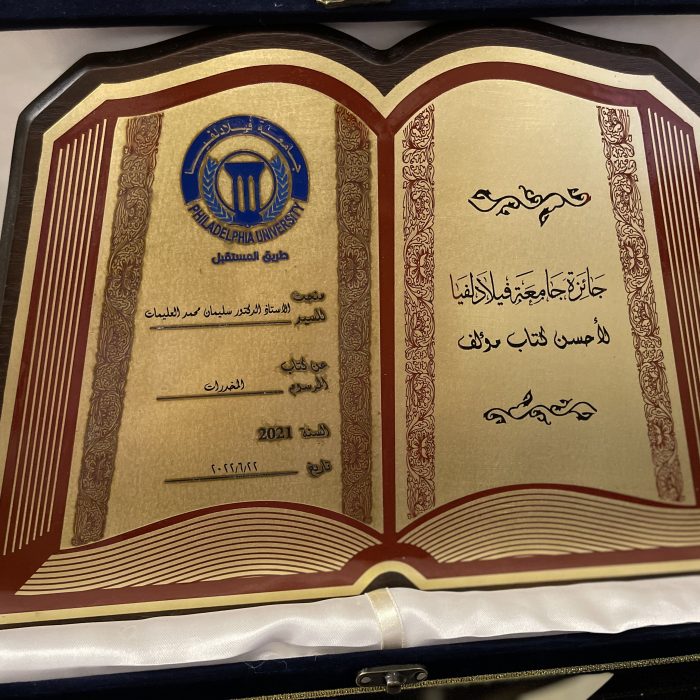 جائزة جامعة فيلادلفيا
لأحسن كتاب مؤلف
جامعة فيلادلفيا
PHILADELPHIA UNIVERSITY
طريق المستقبل
منحت
للسيد الاستاذ الدكتور سليمان محمد العليمات
عن كتاب
الموسوم المخدرات
السنة 2021
تاريخ ٢٠٢٢/٦/٢٢